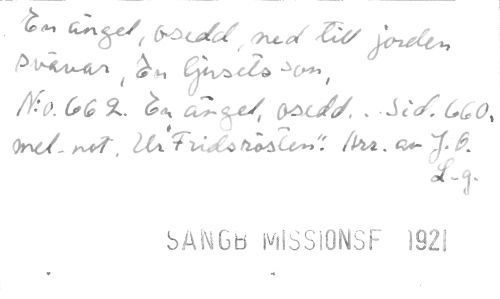 En ängel, osedd, ned till jorden
svävar, En ljusets son,
N:o. 662. En ängel, osedd... Sid. 660.
mel. not. Ur "Fridsrösten". Arr. av J. O.
L-g.
SÅNGB MISSIONSF 1921